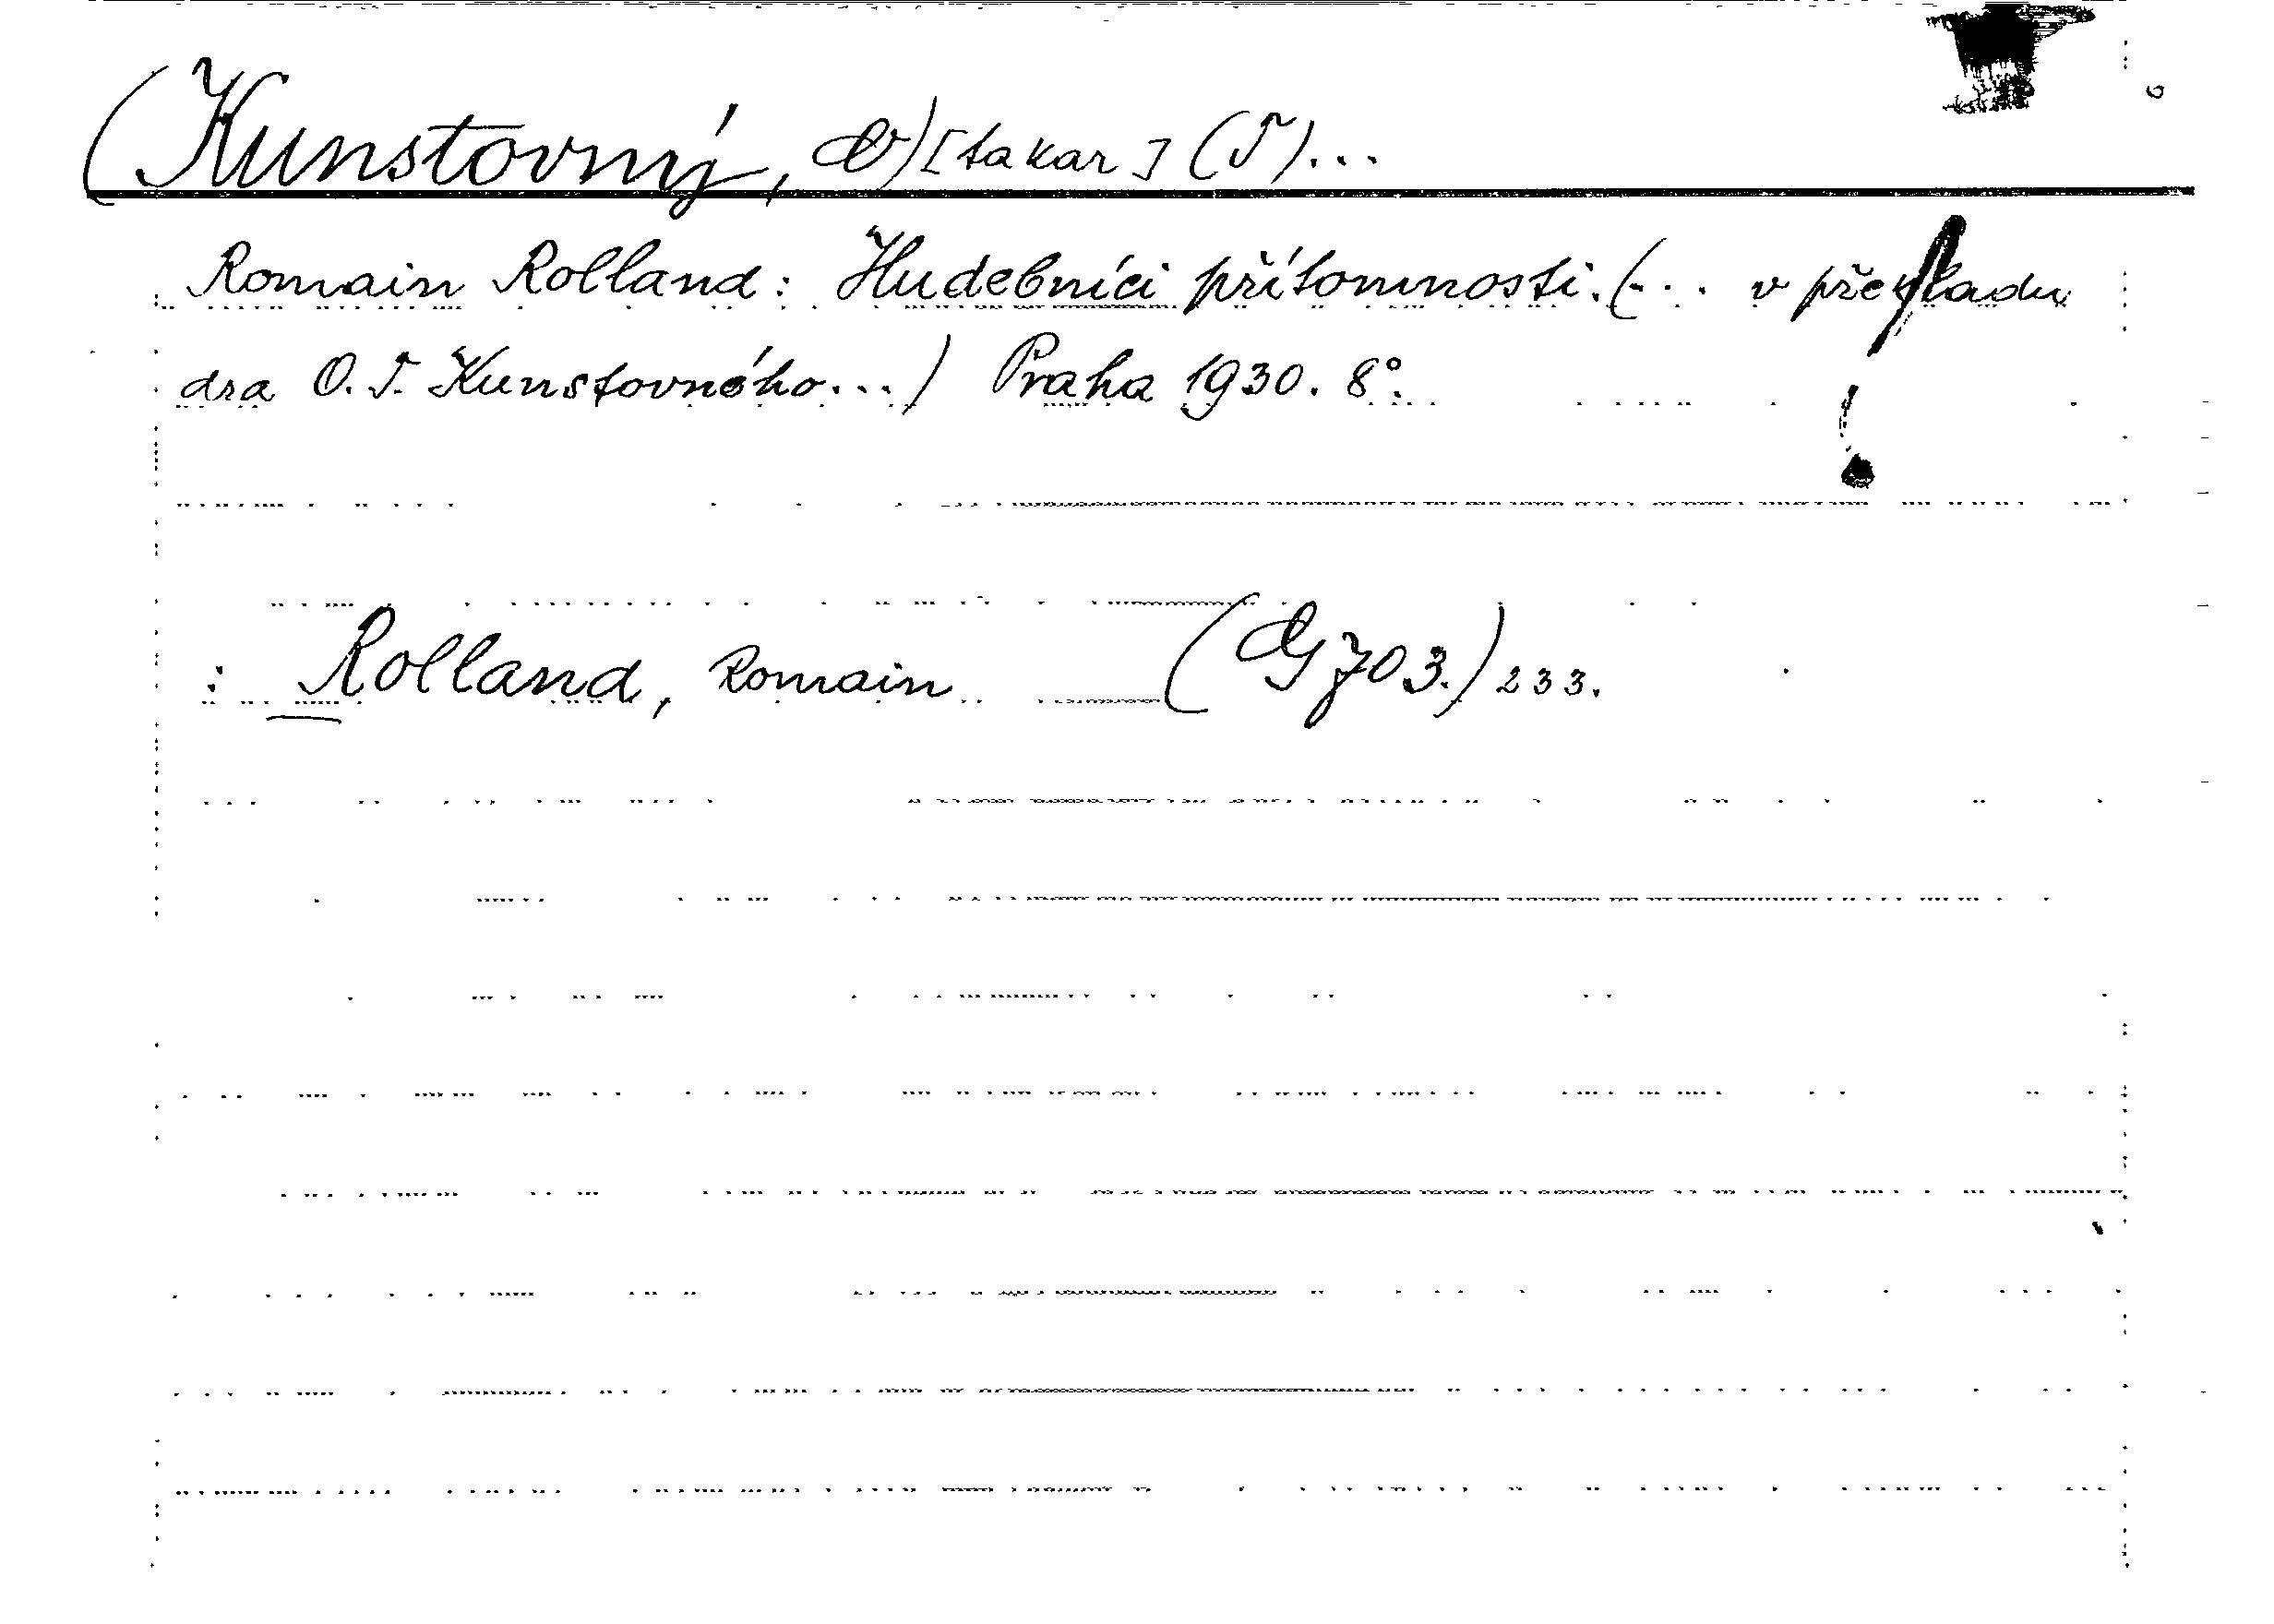 (Kunstovný, O)[takar] (T)...
Romain Rolland: Hudebníci přítomnosti. (... v překladu
dra O. T. Kunstovného...) Praha 1930. 8°.
: Rolland, Romain (G 703.) 233.